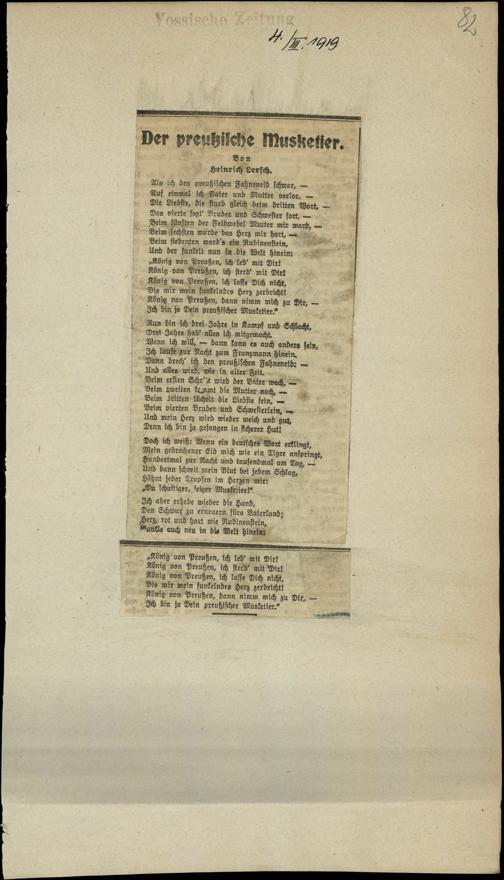 Vossische Zeitung
82
4./III. 1919
Der preußische Musketier.
Von
Heinrich Lersch.
Als ich den preußischen Fahneneid schwor, —
Auf einmal ich Vater und Mutter verlor, —
Die Liebste, die starb gleich beim dritten Wort, —
Das vierte fegt' Bruder und Schwester fort, —
Beim fünften der Feldwebel Mutter mir ward, —
Beim sechsten wurde das Herz mir hart, —
Beim siebenten ward's ein Rubinenstein,
Und der funkelt nun in die Welt hinein:
„König von Preußen, ich leb' mit Dir!
König von Preußen, ich sterb' mit Dir!
König von Preußen, ich lasse Dich nicht,
Bis mir mein funkelndes Herz zerbricht!
König von Preußen, dann nimm mich zu Dir, —
Ich bin ja Dein preußischer Musketier.“
Nun bin ich drei Jahre in Kampf und Schlacht,
Drei Jahre hab' alles ich mitgemacht.
Wenn ich will, — dann kann es auch anders sein,
Ich laufe zur Nacht zum Franzmann hinein,
Dann brech' ich den preußischen Fahneneid: —
Und alles wird, wie in alter Zeit.
Beim ersten Schritt wird der Vater wach, —
Beim zweiten kommt die Mutter nach, —
Beim dritten lächelt die Liebste fein, —
Beim vierten Bruder und Schwesterlein, —
Und mein Herz wird wieder weich und gut,
Denn ich bin ja gefangen in sicherer Hut!
Doch ich weiß: Wenn ein deutsches Wort erklingt,
Mein gebrochener Eid mich wie ein Tiger anspringt,
Hundertmal zur Nacht und tausendmal am Tag, —
Und dann schreit mein Blut bei jedem Schlag,
Höhnt jeder Tropfen im Herzen mir:
„Du schuftiger, feiger Musketier!“
Ich aber erhebe wieder die Hand,
Den Schwur zu erneuern fürs Vaterland;
Herz, rot und hart wie Rubinenstein,
Funkle auch neu in die Welt hinein:
„König von Preußen, ich leb' mit Dir!
König von Preußen, ich sterb' mit Dir!
König von Preußen, ich lasse Dich nicht,
Bis mir mein funkelndes Herz zerbricht!
König von Preußen, dann nimm mich zu Dir, —
Ich bin ja Dein preußischer Musketier.“